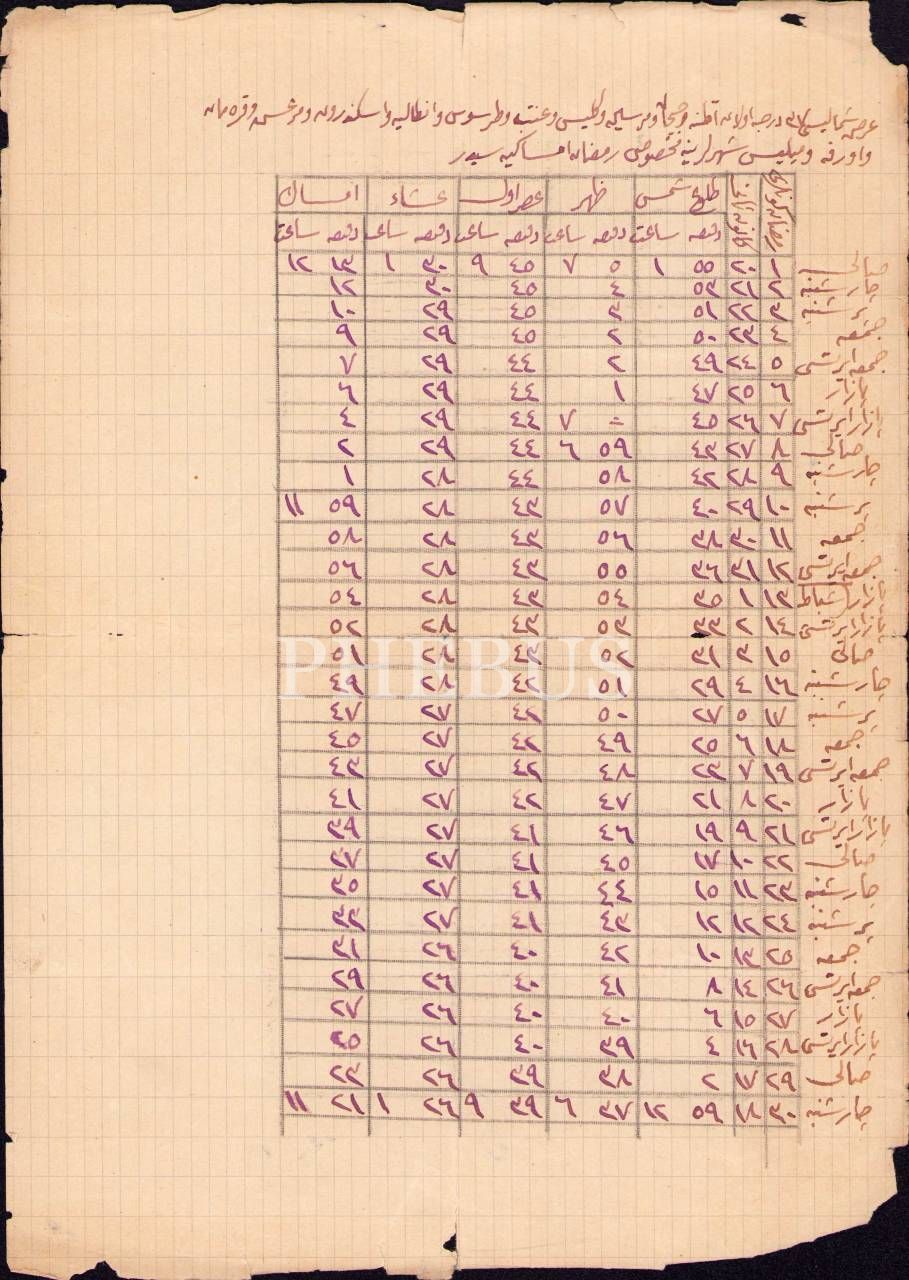 عرض شمالیسی درجه اولان آطنه وجیحان ومرسین وکلیس وعینتاب وطرسوس وانطالیه واسکندرون ومرعش وقره مان
واورفه و میلیس شهرلرینه مخصوص رمضان امساکیه سیدر
طلوع شمس ظهر عصر اول عشاء امساك
دقیقه ساعت دقیقه ساعت دقیقه ساعت دقیقه ساعت دقیقه ساعت
صالی ١ ٢٠ ٥٥ ١ ٥ ٧ ٤٥ ٩ ٣٠ ١ ١٣ ١٢
چارشنبه ٢ ٢١ ٥٣ ٤ ٤٥ ٣٠ ١٢
پرشنبه ٣ ٢٢ ٥١ ٣ ٤٥ ٢٩ ١٠
جمعه ٤ ٢٣ ٥٠ ٢ ٤٥ ٢٩ ٩
جمعه ایرتسی ٥ ٢٤ ٤٩ ٢ ٤٤ ٢٩ ٧
پازار ٦ ٢٥ ٤٧ ١ ٤٤ ٢٩ ٦
پازار ایرتسی ٧ ٢٦ ٤٥ = ٧ ٤٤ ٢٩ ٤
صالی ٨ ٢٧ ٤٣ ٥٩ ٦ ٤٤ ٢٩ ٢
چارشنبه ٩ ٢٨ ٤٢ ٥٨ ٤٤ ٢٨ ١
پرشنبه ١٠ ٢٩ ٤٠ ٥٧ ٤٣ ٢٨ ٥٩ ١١
جمعه ١١ ٣٠ ٣٨ ٥٦ ٤٣ ٢٨ ٥٨
جمعه ایرتسی ١٢ ٣١ ٣٦ ٥٥ ٤٣ ٢٨ ٥٦
پازار شباط ١٣ ١ ٣٥ ٥٤ ٤٣ ٢٨ ٥٤
پازار ایرتسی ١٤ ٢ ٣٣ ٥٣ ٤٣ ٢٨ ٥٢
صالی ١٥ ٣ ٣١ ٥٢ ٤٣ ٢٨ ٥١
چارشنبه ١٦ ٤ ٢٩ ٥١ ٤٢ ٢٨ ٤٩
پرشنبه ١٧ ٥ ٢٧ ٥٠ ٤٢ ٢٧ ٤٧
جمعه ١٨ ٦ ٢٥ ٤٩ ٤٢ ٢٧ ٤٥
جمعه ایرتسی ١٩ ٧ ٢٣ ٤٨ ٤٢ ٢٧ ٤٣
پازار ٢٠ ٨ ٢١ ٤٧ ٤٢ ٢٧ ٤١
پازار ایرتسی ٢١ ٩ ١٩ ٤٦ ٤١ ٢٧ ٣٩
صالی ٢٢ ١٠ ١٧ ٤٥ ٤١ ٢٧ ٣٧
چارشنبه ٢٣ ١١ ١٥ ٤٤ ٤١ ٢٧ ٣٥
پرشنبه ٢٤ ١٢ ١٢ ٤٣ ٤١ ٢٧ ٣٣
جمعه ٢٥ ١٣ ١٠ ٤٢ ٤٠ ٢٦ ٣١
جمعه ایرتسی ٢٦ ١٤ ٨ ٤١ ٤٠ ٢٦ ٢٩
پازار ٢٧ ١٥ ٦ ٤٠ ٤٠ ٢٦ ٢٧
پازار ایرتسی ٢٨ ١٦ ٤ ٣٩ ٤٠ ٢٦ ٢٥
صالی ٢٩ ١٧ ٢ ٣٨ ٣٩ ٢٦ ٢٣
چارشنبه ٣٠ ١٨ ٥٩ ١٢ ٣٧ ٦ ٣٩ ٩ ٢٦ ١ ٢١ ١١
PHEBUS